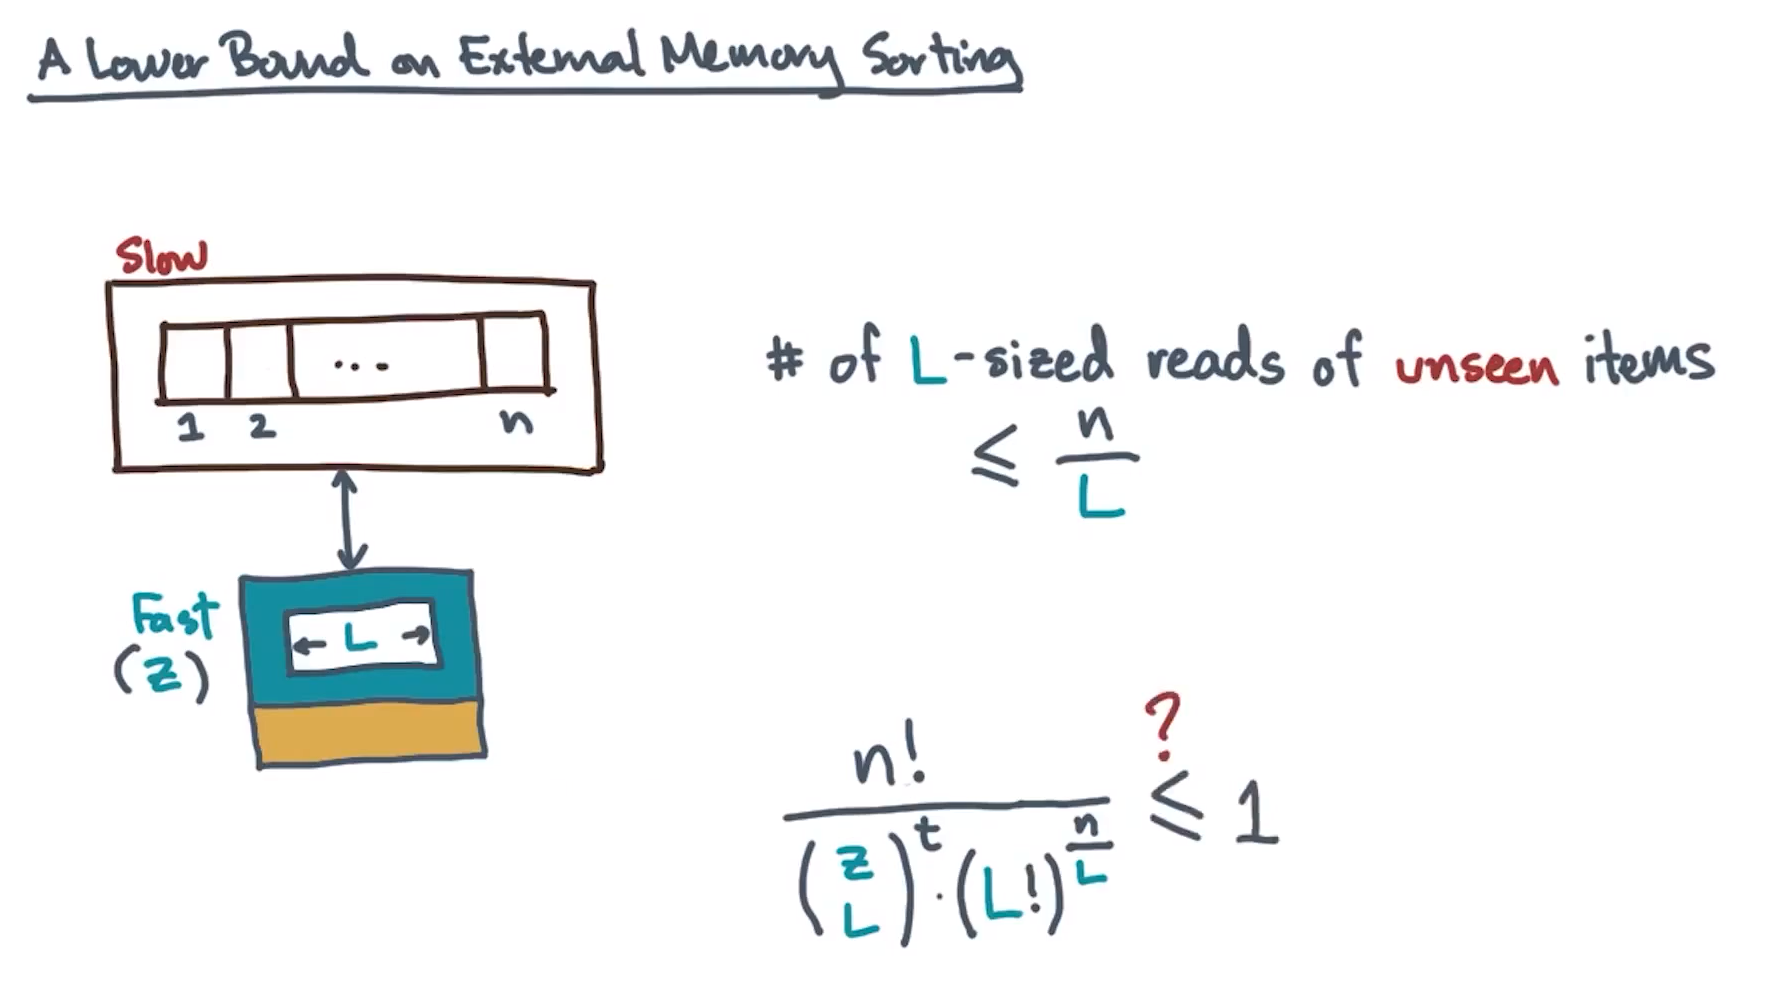 A Lower Bound on External Memory Sorting
Slow
...
1 2 n
Fast
(Z)
← L →
# of L-sized reads of unseen items
≤ n/L
n!
(Z L)^t · (L!)^(n/L)
≤ 1
?